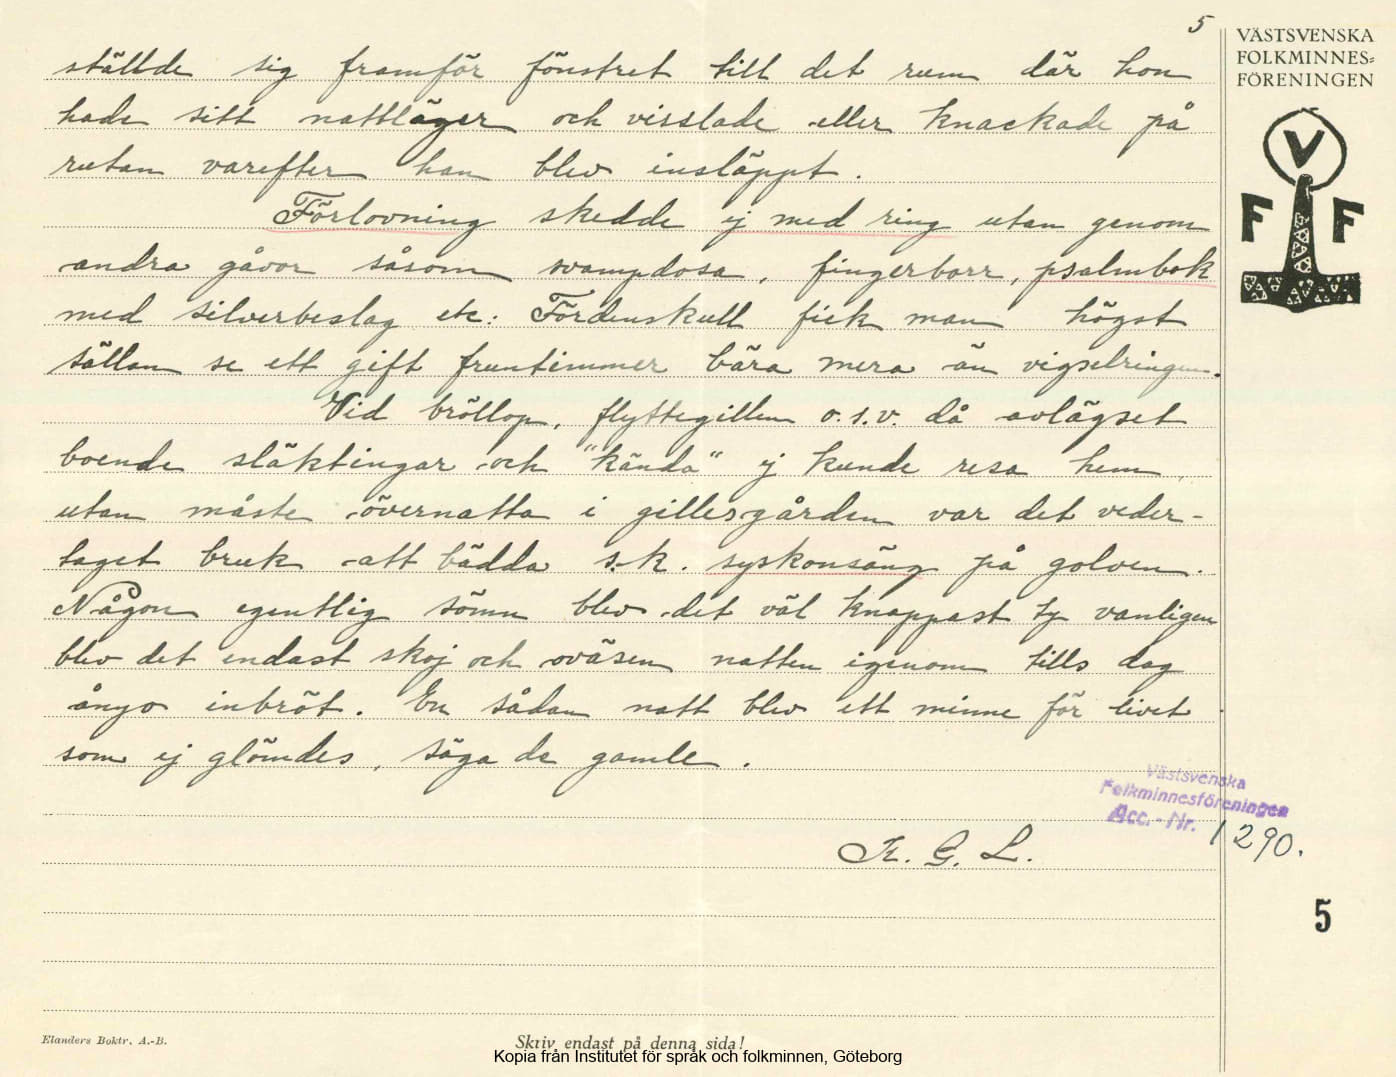 5
VÄSTSVENSKA
FOLKMINNES=
FÖRENINGEN
V
F F
ställde sig framför fönstret till det rum där hon
hade sitt nattläger och visslade eller knackade på
rutan varefter han blev insläppt.
Förlovning skedde ej med ring utan genom
andra gåvor såsom svampdosa, fingerborr, psalmbok
med silverbeslag etc: Fördenskull fick man högst
sällan se ett gift fruntimmer bära mera än vigselringen.
Vid bröllop, flyttegillen o.s.v. då avlägset
boende släktingar och "kända" ej kunde resa hem
utan måste övernatta i gillesgården var det veder-
taget bruk att bädda s.k. syskonsäng på golven.
Någon egentlig sömn blev det väl knappast ty vanligen
blev det endast skoj och oväsen natten igenom tills dag
ånyo inbröt. En sådan natt blev ett minne för livet
som ej glömdes, säga de gamle.
Västsvenska
Folkminnesföreningen
Acc.-Nr. 1290.
K. G. L.
5
Elanders Boktr. A.-B.
Skriv endast på denna sida!
Kopia från Institutet för språk och folkminnen, Göteborg